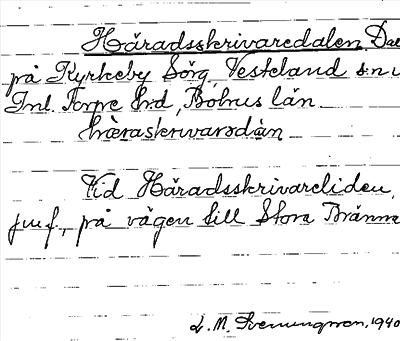 Häradsskrivaredalen, Dal
på Kyrkeby Sörg, Vesteland s:n i
Inl. Torpe h:d, Bohus län
häraskrivarsdàn
Vid Häradsskrivareliden,
jmf, på vägen till Stora Bränna
L. M. Svenungsson, 1940